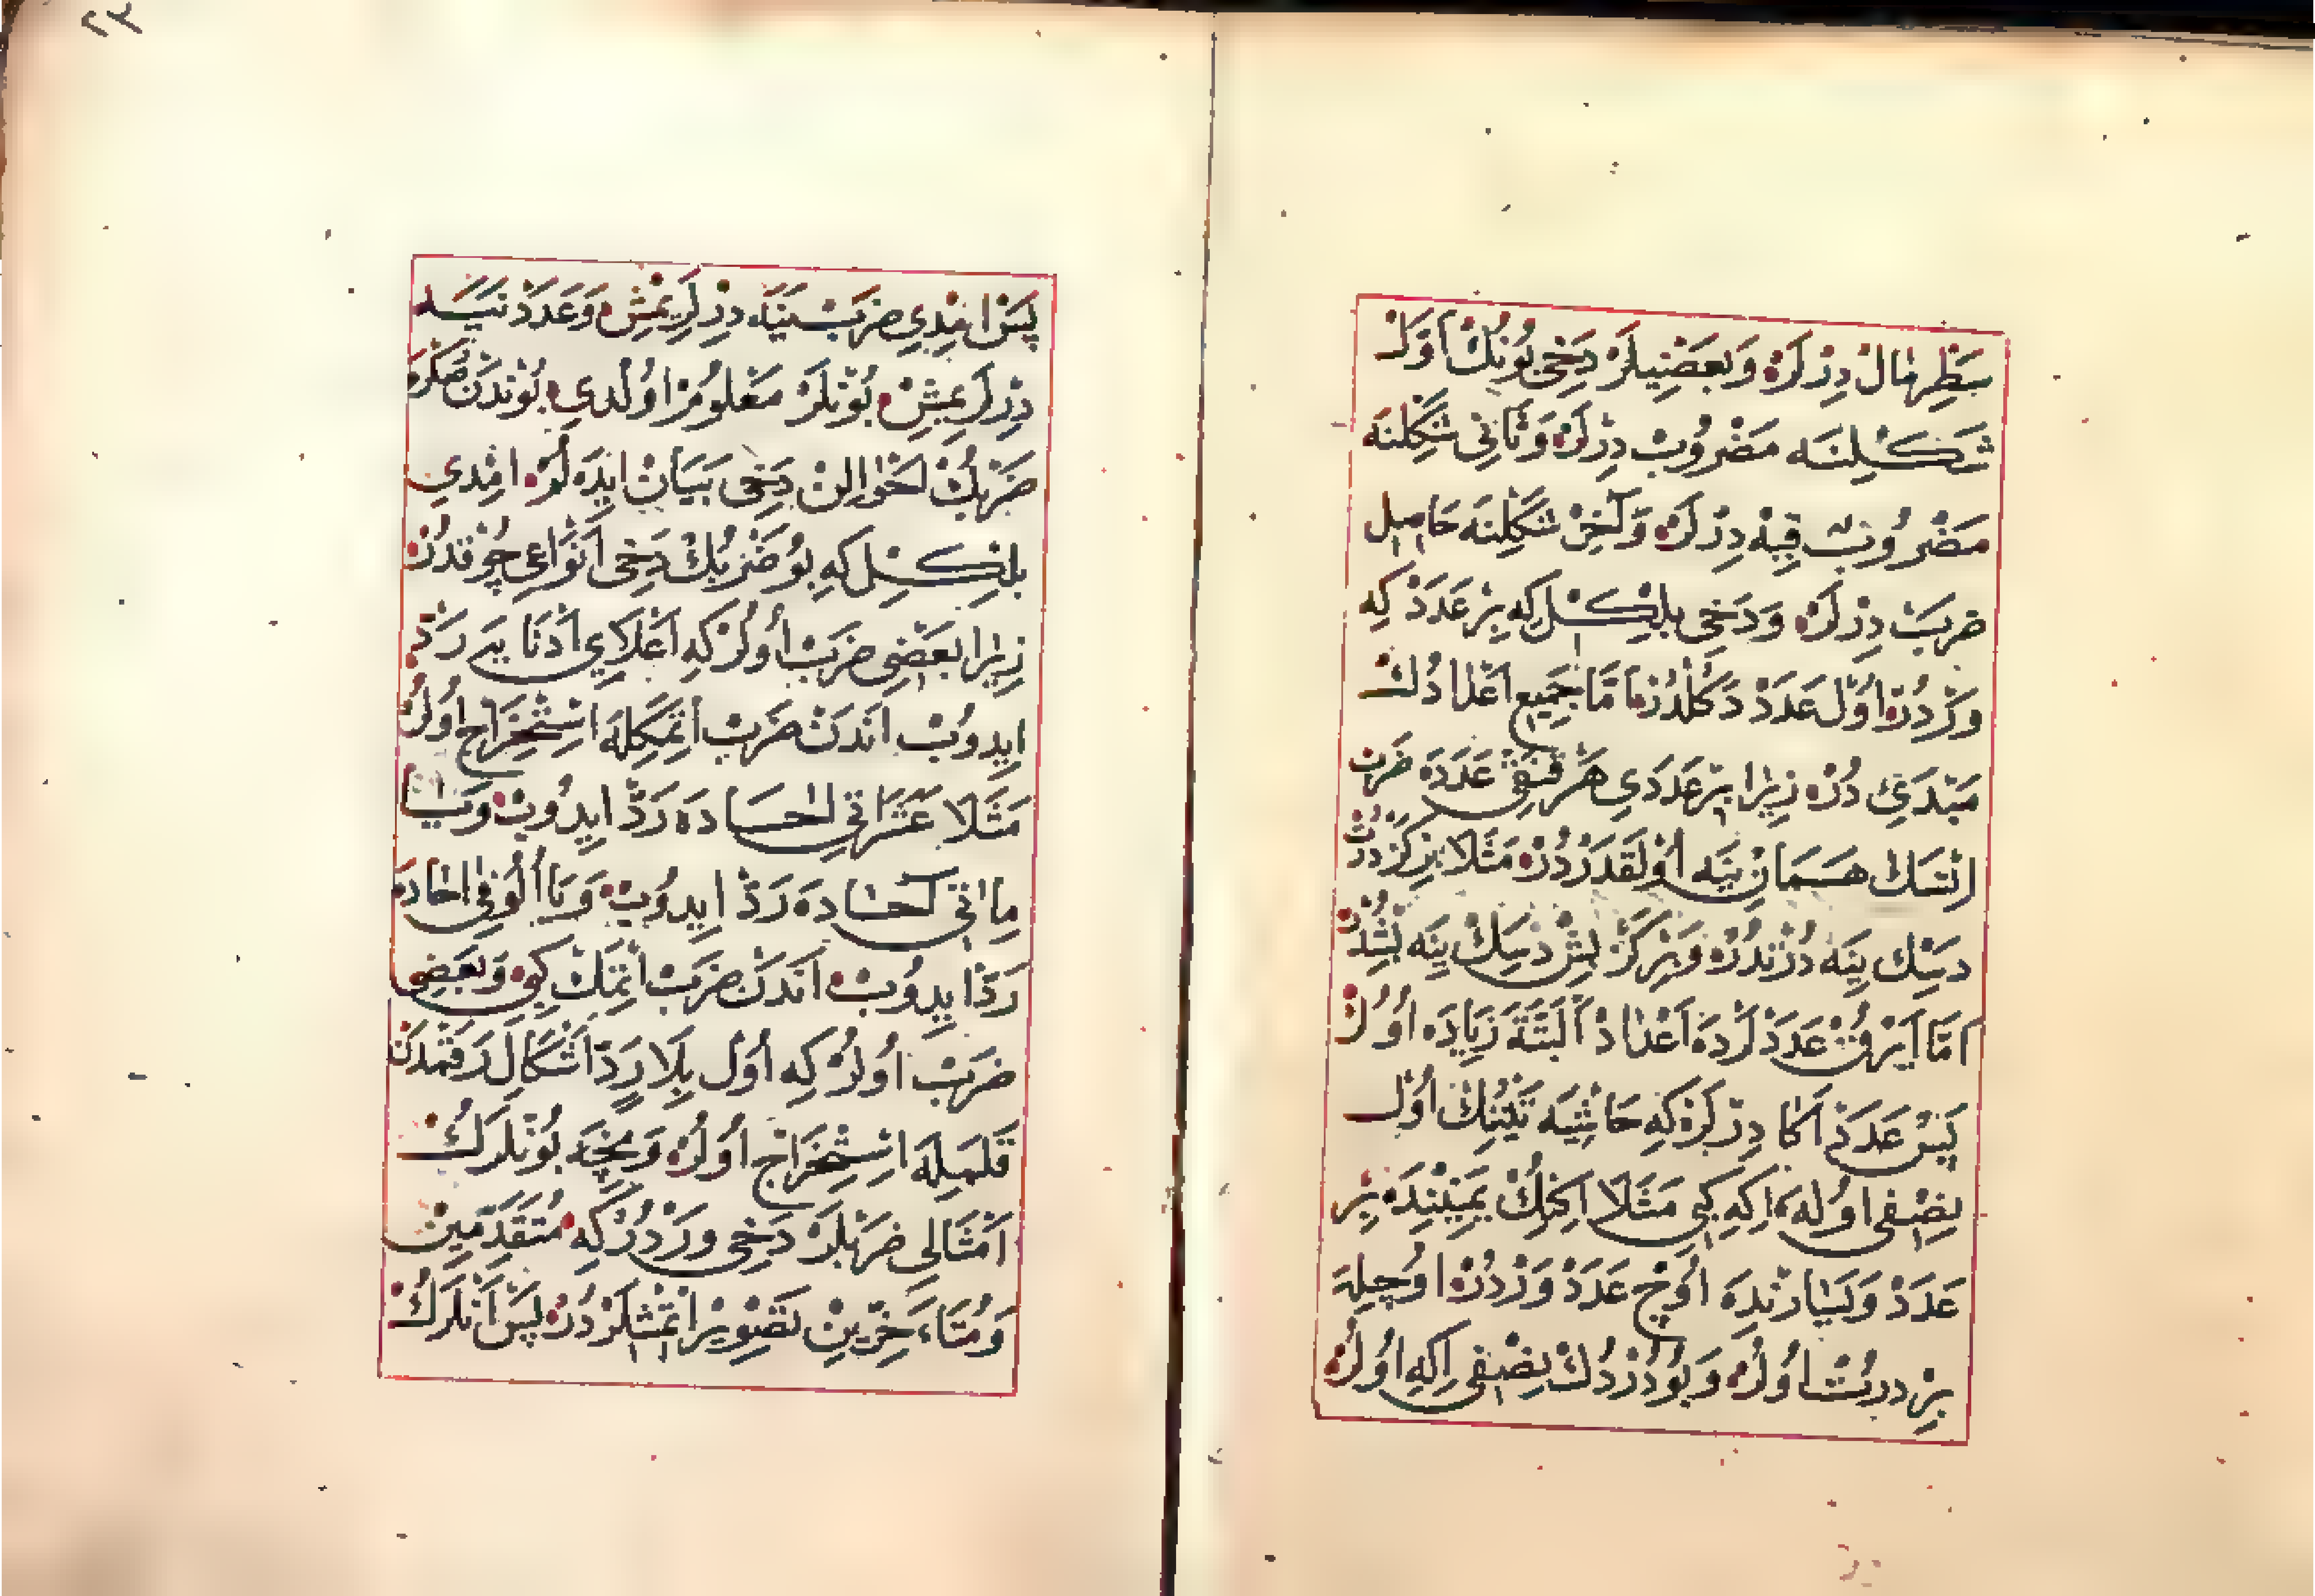 سَطِرْمَالْ دِرْلَرْ وَبَعَضِيلَرْ دَخِى بُونُكْ اَوَّلْ
شَكِلِنَه مَضْرُوبْ دِرْلَرْ وَثَانِى شَكِلِنَه
مَضْرُوبْ فِيهْ دِرْلَرْ وَآخِرْ شَكِلِنَه حَاصِلِ
ضَرِبْ دِرْلَرْ وَدَخِى بِلْكِلْ كِه بِرْ عَدَدْ كِه
وَرْدُرْ اُوَّلْ عَدَدْ دَكُلْدُرْ اَمَّا جَمِيعِ اَعْدَادُكْ
مَبْدَئِ دُرْ زِيرَا بِرْ عَدَدِى هَرْ قَنْقِى عَدَدَه ضَرِبْ
اِتْسَكْ هَمَانْ يِنَه اُولْقَدَرْدُرْ مَثَلَا بِرْكَزْ دُرْتْ
دِسَكْ يِنَه دُرْتْدُرْ وَبِرْكَزْ بَشْ دِسَكْ يِنَه بَشْدُرْ
اَمَّا اَيْرُقْ عَدَدْلَرْدَه اَعْدَادْ اَلْبَتَّه زِيَادَه اُولُرْ
پَسْ عَدَدْ اَكَا دِرْلَرْ كِه حَاشِيَه تَيْنِنُكْ اُولْ
نِصْفِى اُولَه اِكِه كِبِى مَثَلَا اِكِنُكْ يَمِينِنْدَه بِرْ
عَدَدْ وَيَسَارِنْدَه اُوچْ عَدَدْ وَرْدُرْ اُوچِلَه
بِرْ دُرْتْ اُولُرْ وَبُو دُرْدُكْ نِصْفِى اِكِه اُولُرْ
پَسْ اِمْدِى ضَرِبْ نَيَه دِرْلَرِيمِشْ وَعَدَدْ نَيَه
دِرْلَرِيمِشْ بُونْلَرْ مَعْلُومْ اُولْدِى بُونْدَنْ صَكْرَه
ضَرْبُكْ اَحْوَالِنْ دَخِى بَيَانْ ايدَه لُمْ اِمْدِى
بِلْكِلْ كِه بُو ضَرْبُكْ دَخِى اَنْوَاعِى چُوقْدُرْ
زِيرَا بَعَضِى ضَرِبْ اُولُرْ كِه اَعْلَايِ اَدْنَا يَه رَدّْ
اِيدُوبْ اَنْدَنْ ضَرِبْ اِتْمَكِلَه اِسْتِخْرَاجْ اُولُرْ
مَثَلَا عَشَرَاتِى اَحَادَه رَدّْ اِيدُوبْ وَيَا
مِاٰتِى اَحَادَه رَدّْ اِيدُوبْ وَيَا اُلُوفِى اٰحَادَه
رَدّْ اِيدُوبْ اَنْدَنْ ضَرِبْ اِتْمَكْ كِبِى وَبَعَضِى
ضَرِبْ اُولُرْ كِه اُولْ بِلَا رَدّْ اَشْكَالِ رَقَمْدَنْ
قَلَمِيلَه اِسْتِخْرَاجْ اُولُرْ وَنِچَه بُونْلَرُكْ
اَمْثَالِى ضَرْبْلَرْ دَخِى وَرْدُرْ كِه مُتَقَدِّمِينْ
وَمُتَاَخِّرِينْ تَصْوِيرْ اِتْمِشْلَرْدُرْ پَسْ اَنْلَرُكْ